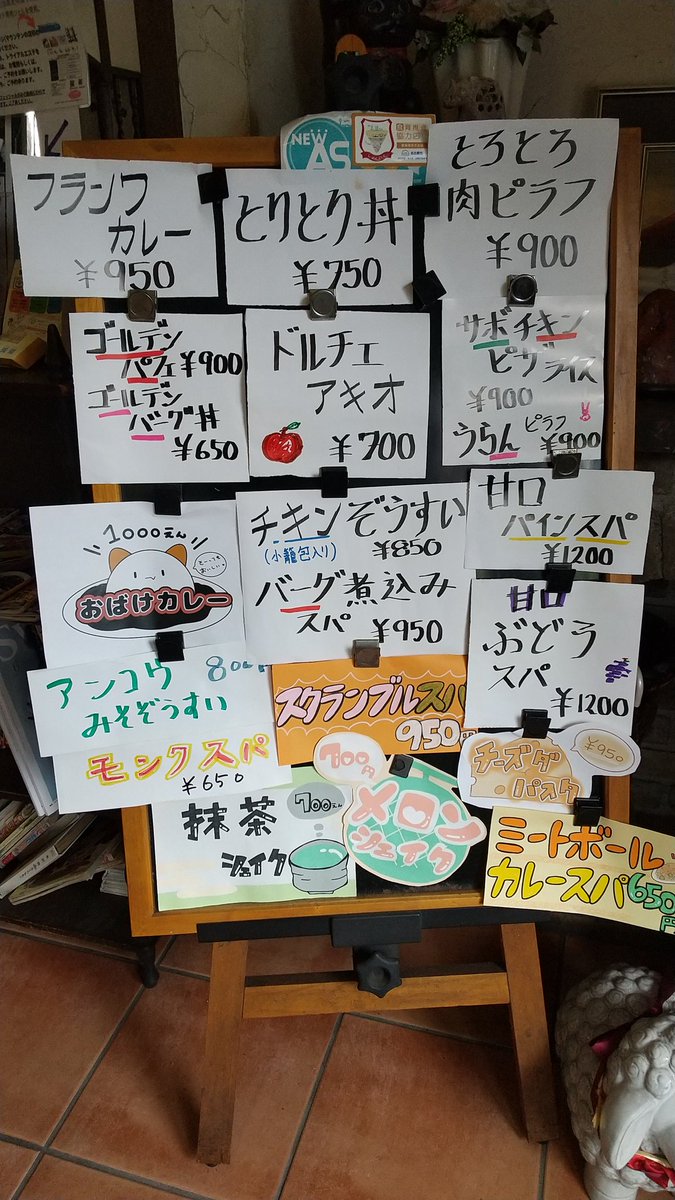 フランワ
カレー
¥950
とりとり丼
¥750
とろとろ
肉ピラフ
¥900
ゴールデン
パフェ¥900
ゴールデン
バーグ丼
¥650
ドルチェ
アキオ
¥700
サボチキン
ピザライス
¥900
うらんピラフ
¥900
1000えん
おばけカレー
チキンぞうすい
(小籠包入り)
¥850
バーグ煮込み
スパ ¥950
甘口
パインスパ
¥1200
甘口
ぶどう
スパ
¥1200
アンコウ
みそぞうすい
モンクスパ
¥650
スクランブルスパ
950円
¥950
チーズダ
パスタ
抹茶
シェイク
700えん
700円
メロン
シェイク
ミートボール
カレースパ650円
NEW
AS